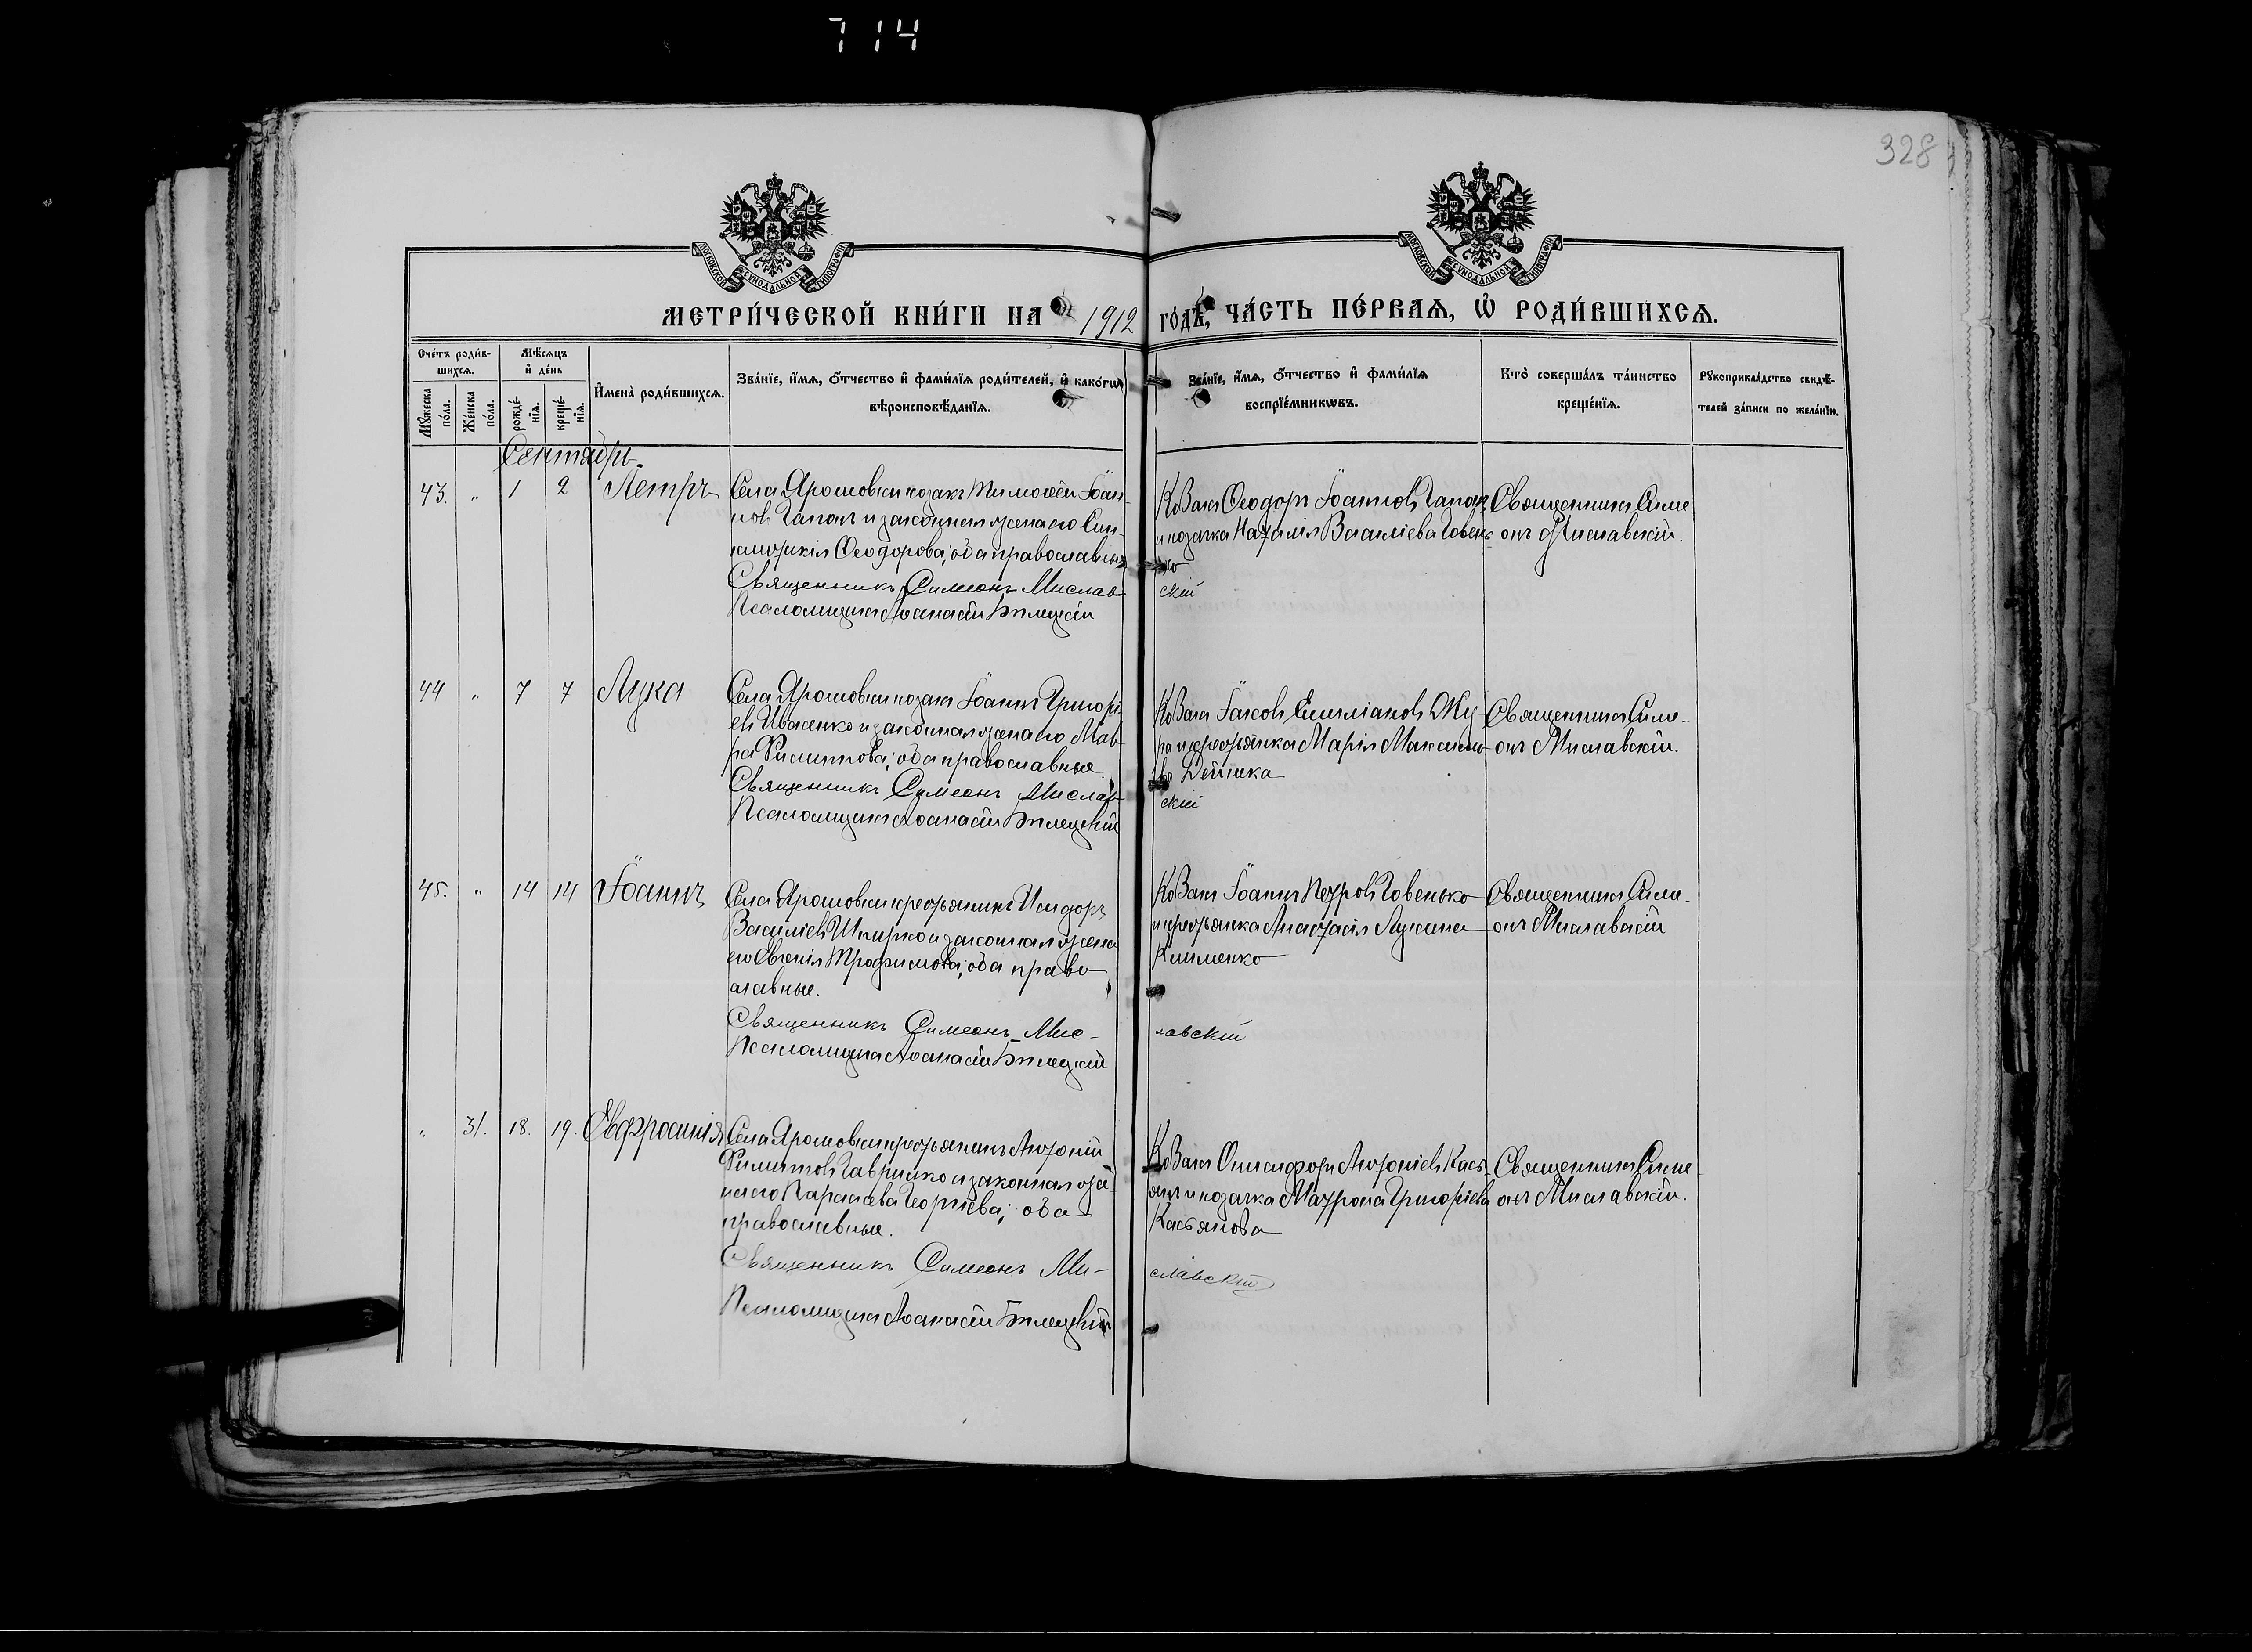 714
328
МОСКОВСКОЙ СѴНОДАЛЬНОЙ ТИПОГРАФІИ
МОСКОВСКОЙ СѴНОДАЛЬНОЙ ТИПОГРАФІИ
МЕТРИ́ЧЕСКОЙ КНИ́ГИ НА 1912 ГО́ДЪ, ЧА́СТЬ ПЕ́РВАЯ, Ѡ҆ РОДИ́ВШИХСЯ.
Сче́тъ роди́в-
шихся.
Мѣ́сяцъ
и҆ де́нь
Мꙋ́жеска по́ла.
Же́нска по́ла.
рожде́-
нїя.
креще́-
нїя.
И҆мена̀ роди́вшихся.
Зва́нїе, и҆́мя, ѻ҆́тчество и҆ фами́лїя роди́телей, и҆ како́гѡ
вѣроисповѣ́данїя.
Зва́нїе, и҆́мя, ѻ҆́тчество и҆ фами́лїя
воспрїе́мникѡвъ.
Кто̀ соверша́лъ та́инство
креще́нїя.
Рꙋкоприкла́дство свидѣ́-
телей за́писи по жела́нїю.
Сентябрь
43. " 1 2 Петръ
Села Ярошовки козакъ Тимоѳей Іоан-
новъ Гапонъ и законная жена его Син-
клитикія Ѳеодорова; оба православные
Священникъ Симеонъ Мислав-
скій
Псаломщикъ Аѳанасій Бѣлецкій
Козакъ Ѳеодоръ Іоанновъ Гапонъ
и козачка Наталія Василіева Говень-
ко
Священникъ Симе-
онъ Миславскій.
44 " 7 7 Лука
Села Ярошовки козакъ Іоаннъ Григорі-
евъ Ивасенко и законная жена его Мав-
ра Филиппова; оба православные
Священникъ Симеонъ Мислав-
скій
Псаломщикъ Аѳанасій Бѣлецкій
Козакъ Іаковъ Емиліановъ Жу-
ра и крестьянка Марія Максимо-
ва Дейнека
Священникъ Симе-
онъ Миславскій.
45. " 14 14 Іоаннъ
Села Ярошовки крестьянинъ Исидоръ
Василіевъ Шпирко и законная жена
его Евгенія Трофимова; оба право-
славные.
Священникъ Симеонъ Мис-
лавскій
Псаломщикъ Аѳанасій Бѣлецкій
Козакъ Іоаннъ Петровъ Говенько
и крестьянка Анастасія Лукина
Клименко
Священникъ Симе-
онъ Миславскій
" 31. 18. 19. Евфросинія
Села Ярошовки крестьянинъ Антоній
Филипповъ Гавришко и законная же-
на его Параскева Георгіева; оба
православные.
Священникъ Симеонъ Ми-
славскій
Псаломщикъ Аѳанасій Бѣлецкій
Козакъ Онисифоръ Антоніевъ Кась-
янъ и козачка Матрона Григоріева
Касьянова
Священникъ Симе-
онъ Миславскій.